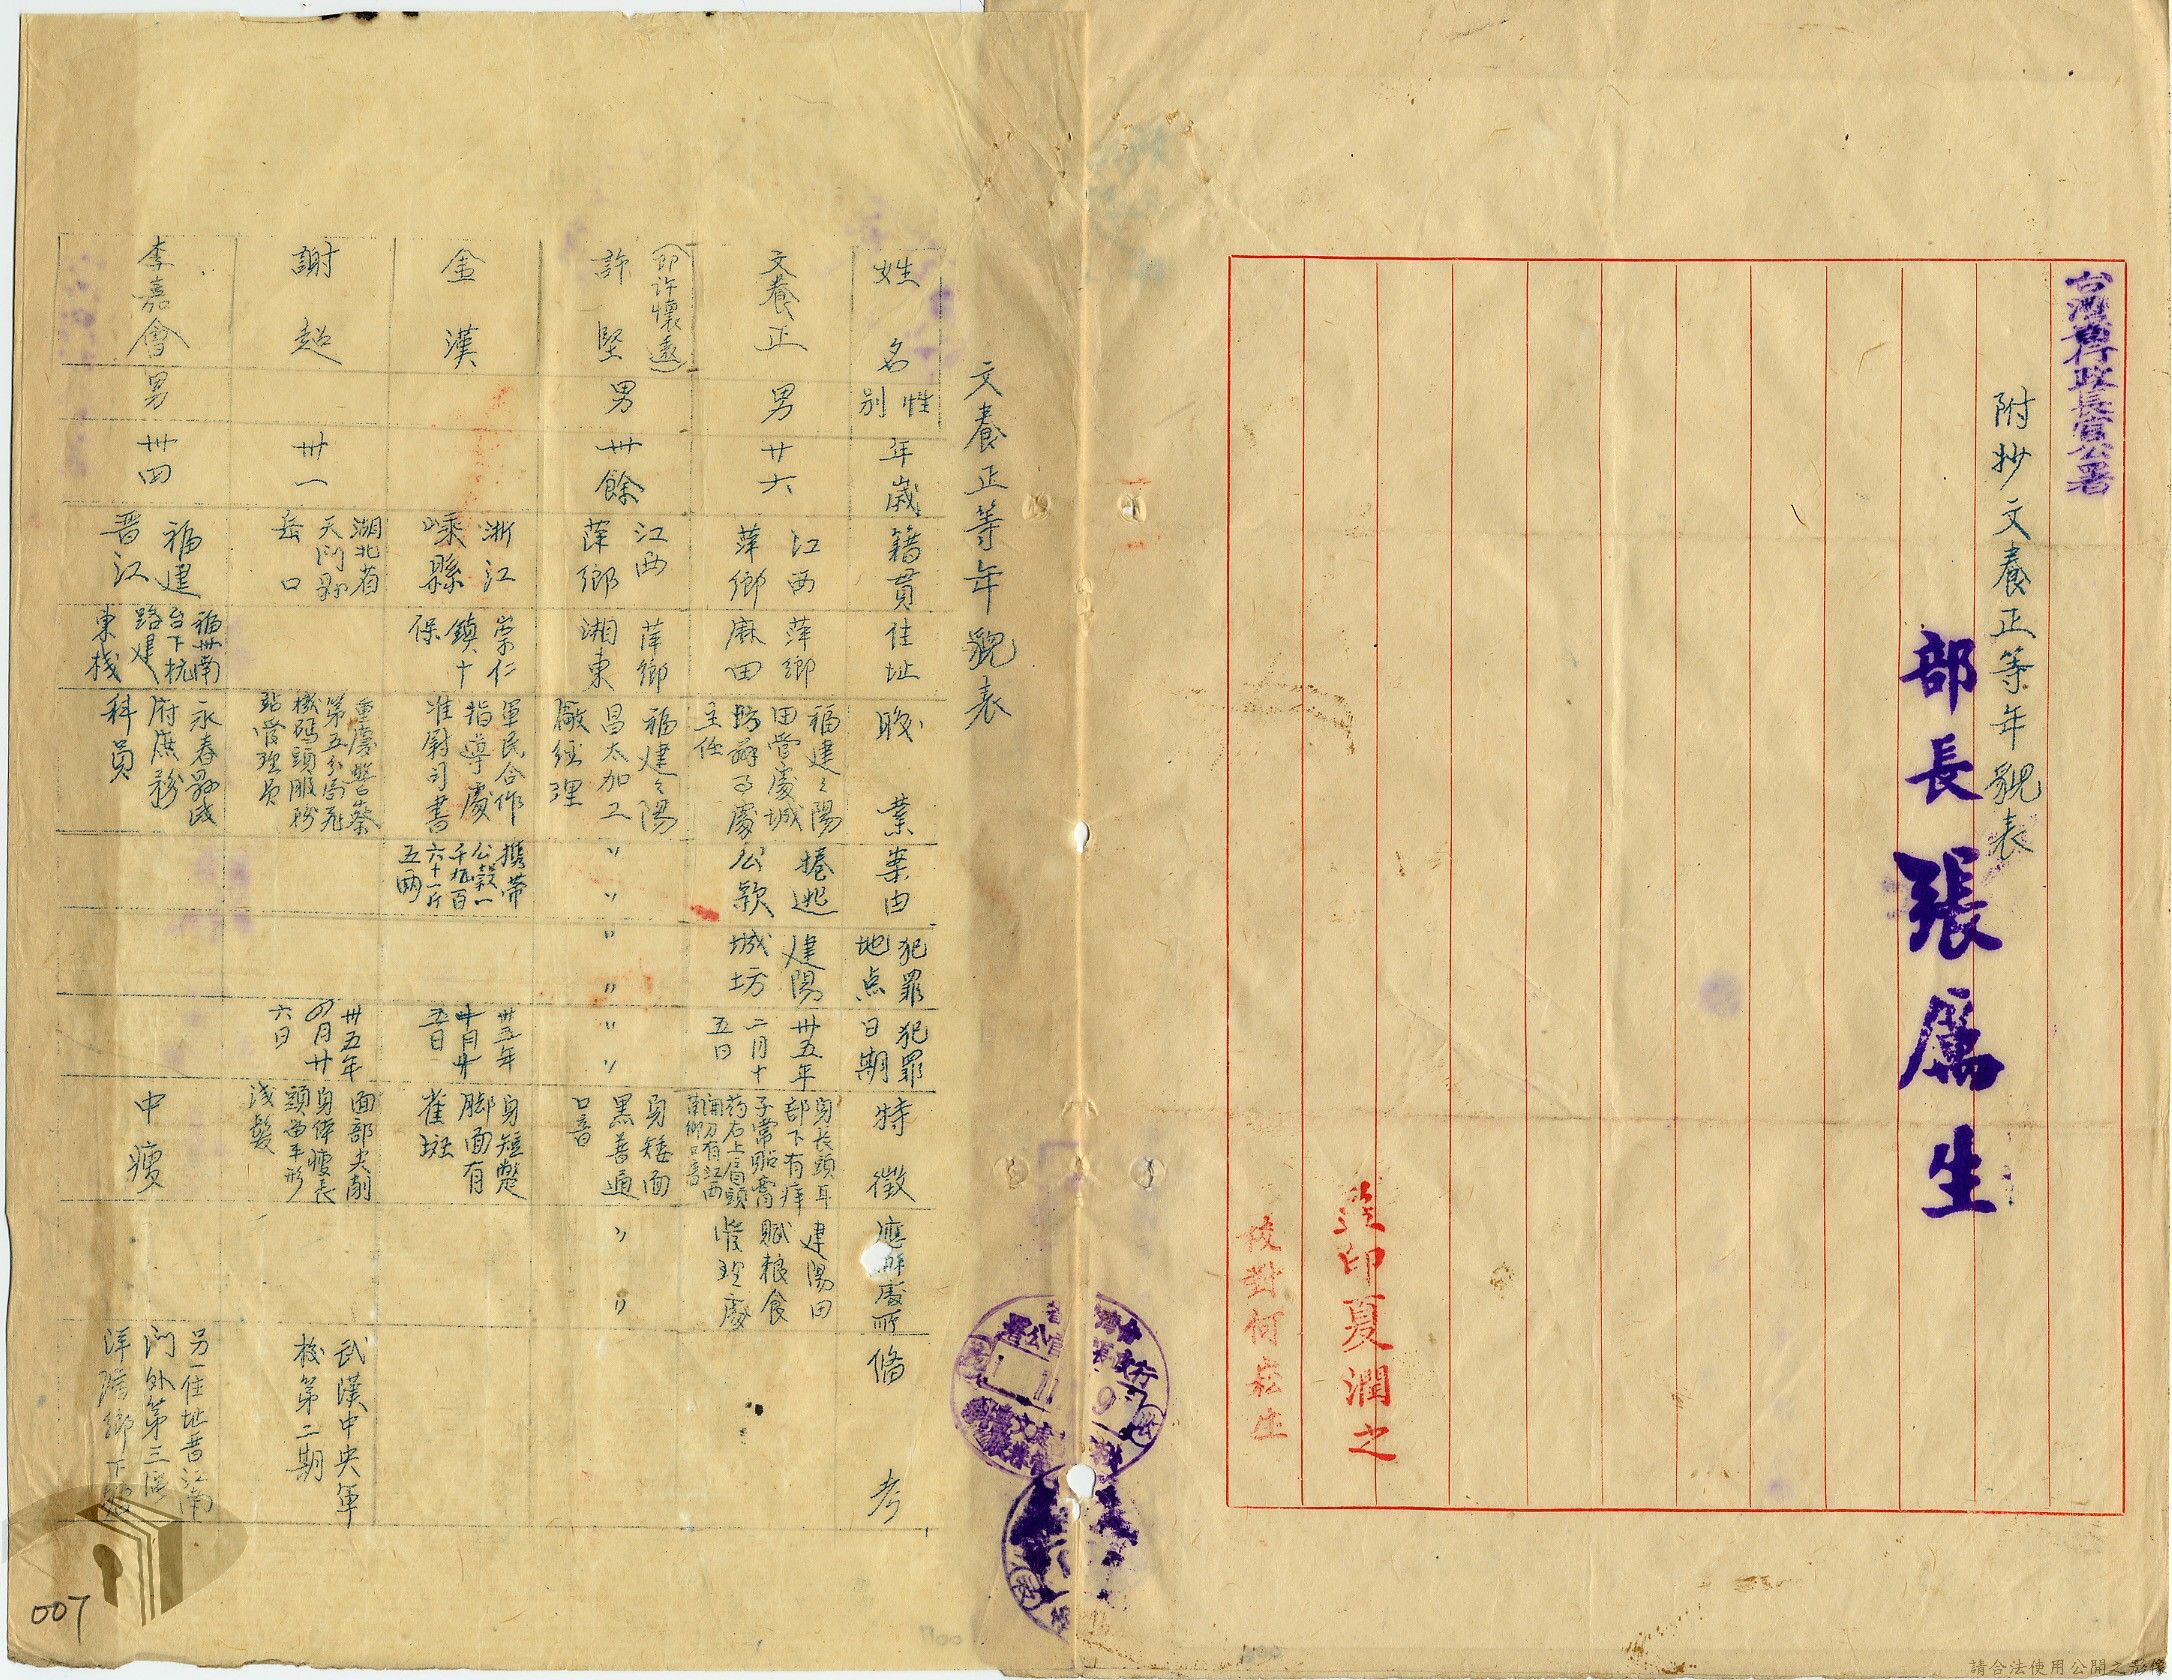 台灣省行政長官公署
附抄文養正等年貌表
部長張厲生
監印夏潤之
校對何崧生
文養正等年貌表
姓名
性別
年歲
籍貫
住址
職業
案由
犯罪地点
犯罪日期
特徵
應解處所
備考
文養正
男
廿六
江西萍鄉
萍鄉麻田
福建々陽田管處城坊辦事處主任
捲逃公款
建陽城坊
卅五年二月十五日
身長頭耳部下有痒子常貼膏药右上眉頭
南鄉口音
建陽田賦粮食管理處
(即许懷遠)
許堅
男
卅餘
江西萍鄉
萍鄉湘東
福建々陽昌太加工廠經理
〃〃
〃〃
〃〃
身矮面黑普通口音
〃〃
金漢
浙江嵊縣
崇仁鎮十保
軍民合作指導處准尉司書
携帶公穀一千九百六十一斤五両
卅五年十月廿五日
身短蹩脚面有雀斑
謝超
卅一
湖北省天門县岳口
重慶警察第五分局飛機碼頭服務站管理員
卅五年四月廿六日
面部尖削身体瘦長頭留平形浅髮
武漢中央軍校第二期
李嘉會
男
卅四
福建晋江
福州南台下杭路建東棧
永春县政府庶務科員
中瘦
另一住址晋江南門外第三區
007
請合法使用公開之影像